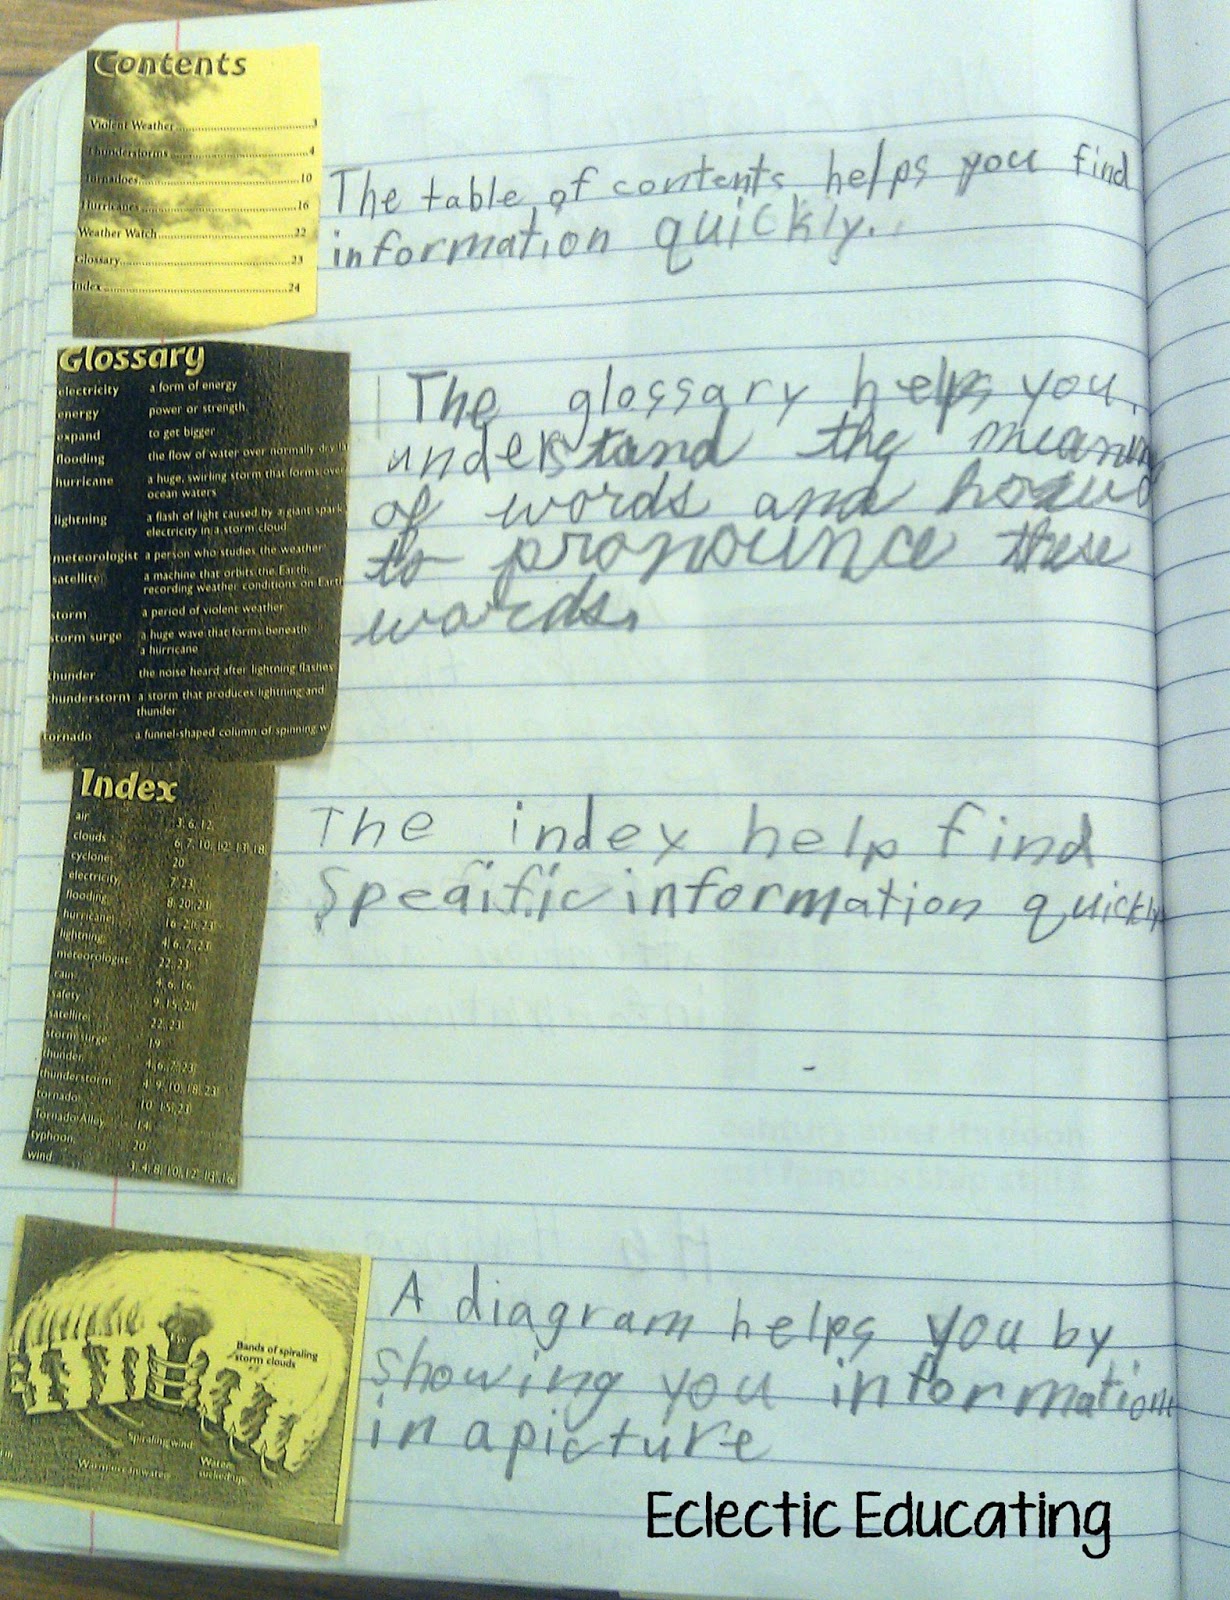 Contents
Violent Weather 3
Thunderstorms 4
Tornadoes 10
Hurricanes 16
Weather Watch 22
Glossary 23
Index 24
The table of contents helps you find
information quickly.
Glossary
electricity a form of energy
energy power or strength
expand to get bigger
flooding the flow of water over normally dry
hurricane a huge, swirling storm that forms over
ocean waters
lightning a flash of light caused by a giant spark
electricity in a storm cloud
meteorologist a person who studies the weather
satellite a machine that orbits the Earth,
recording weather conditions on Earth
storm a period of violent weather
storm surge a huge wave that forms beneath
a hurricane
thunder the noise heard after lightning flashes
thunderstorm a storm that produces lightning and
thunder
tornado a funnel-shaped column of spinning
The glossary helps you
understand the meaning
of words and
to pronounce these
words.
Index
air 3, 6, 12
clouds 6, 7, 10, 12, 13, 18
cyclone 20
electricity 7, 23
flooding 8, 20, 23
hurricane 16-20, 23
lightning 4, 6, 7, 23
meteorologist 22, 23
rain 4, 6, 16
safety 9, 15, 21
satellite 22, 23
storm surge 19
thunder 4, 6, 7, 23
thunderstorm 4, 9, 10, 18, 23
tornado 10-15, 23
Tornado Alley 14
typhoon 20
wind 3, 4, 8, 10, 12, 13, 16
The index help find
Speaific information quickly
Eye
Bands of spiraling
storm clouds
Spiraling wind
Warm ocean water
Water
sucked up
A diagram helps you by
showing you information
in a picture
Eclectic Educating